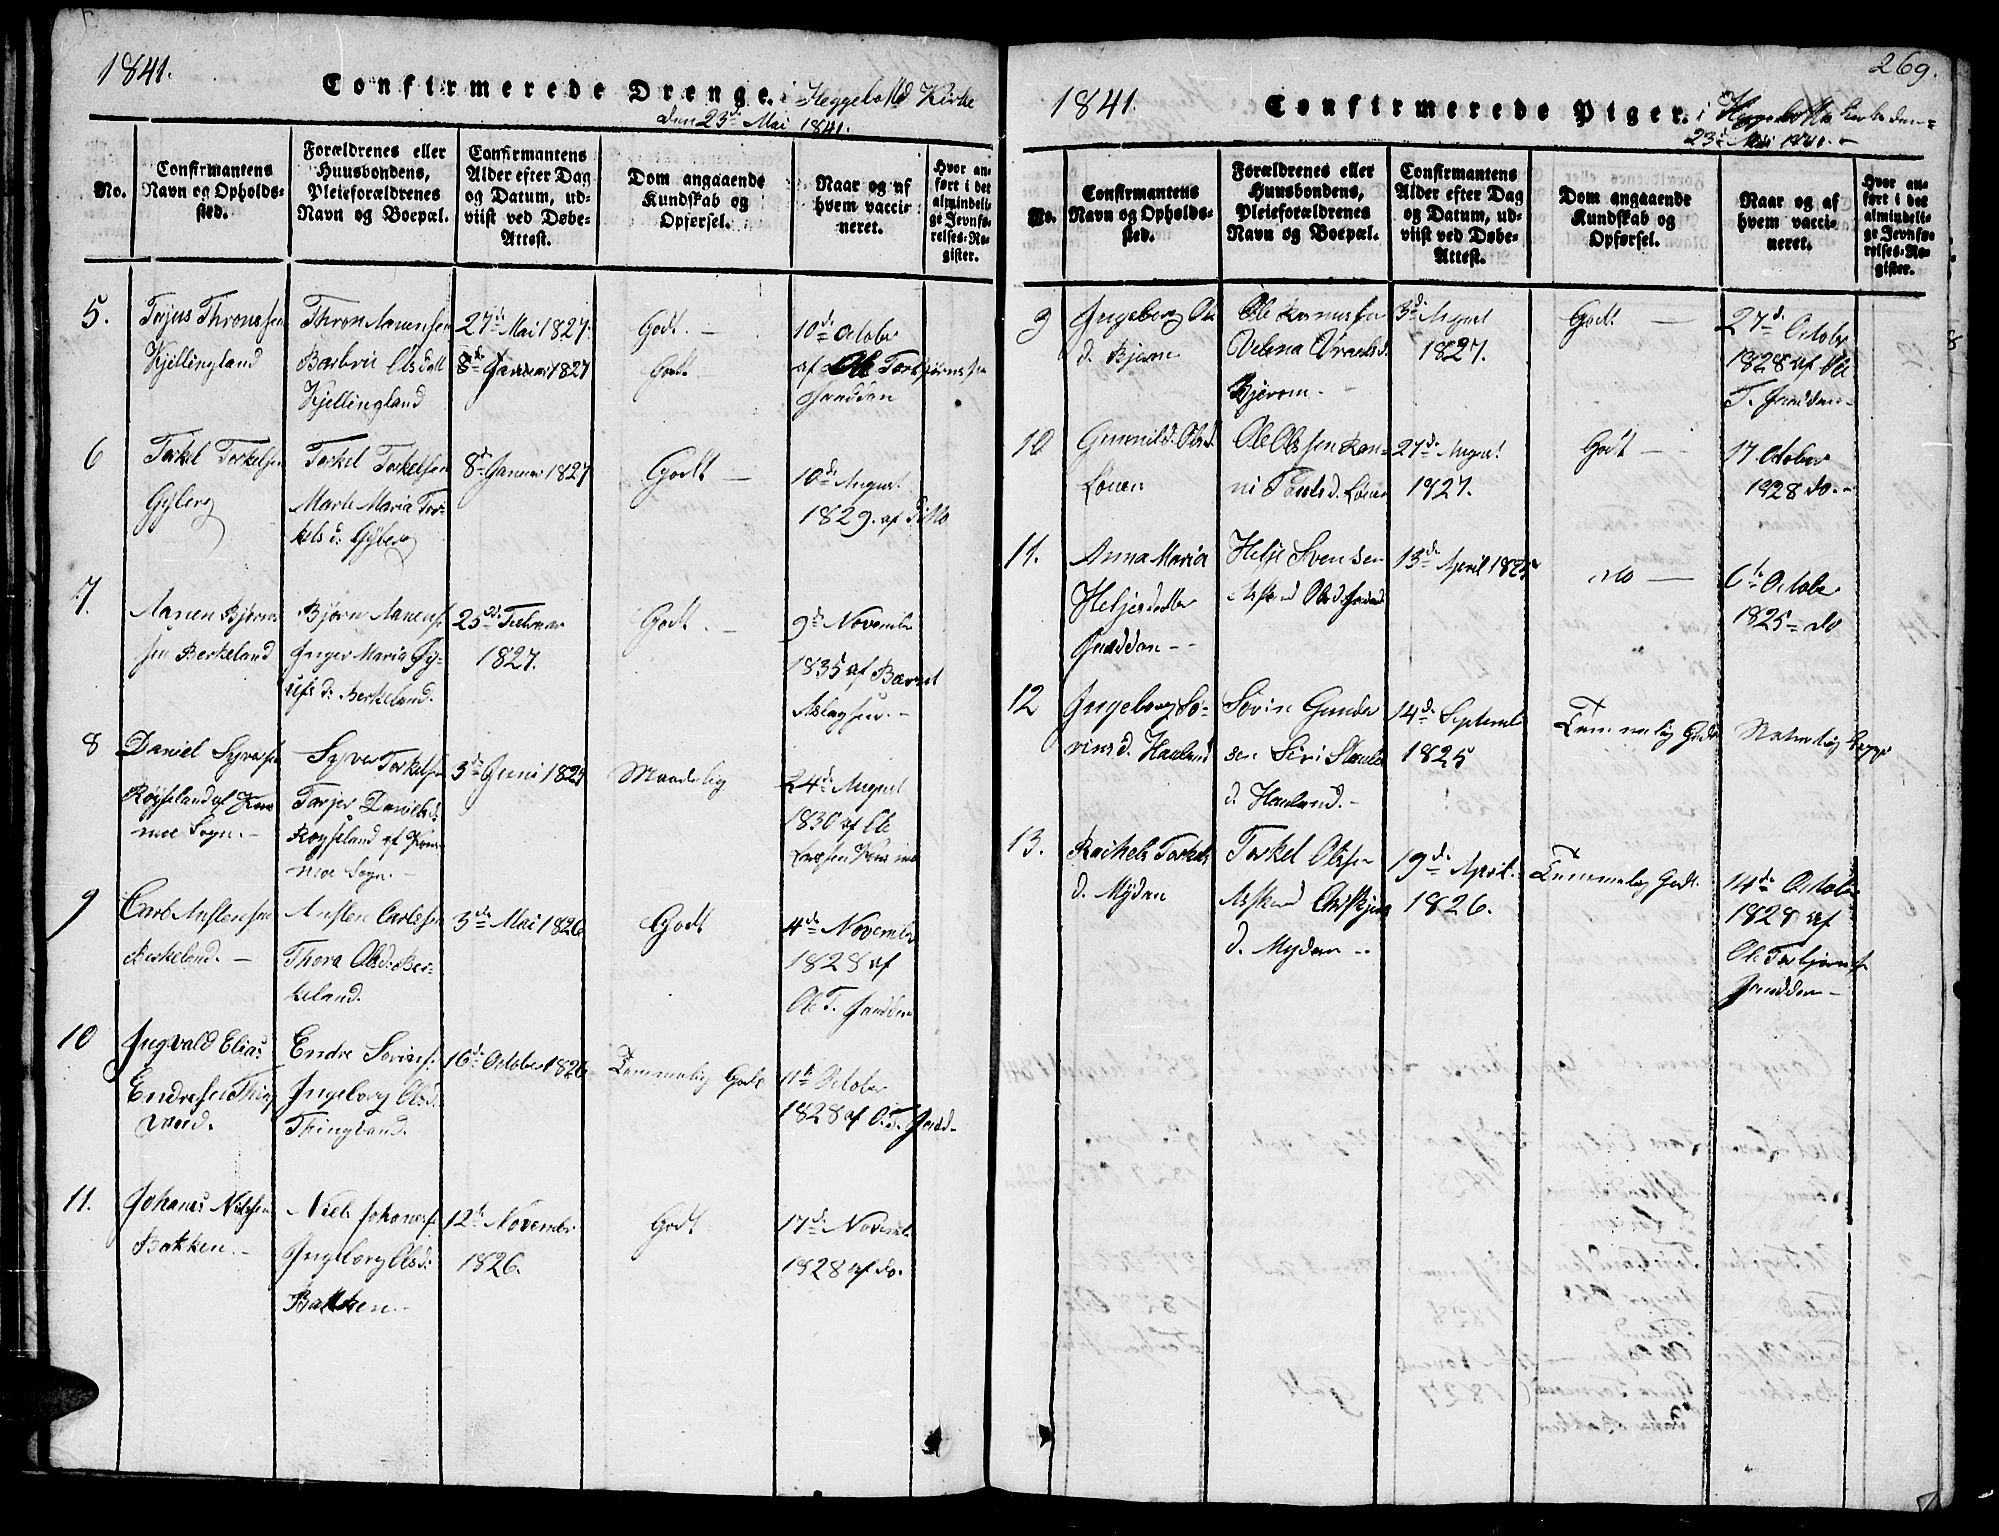 1841.
Confirmerede Drenge. i Heggebostd Kirke
den 23d Mai 1841.
No.
Confirmantens
Navn og Opholds-
sted.
Forældrenes eller
Huusbondens,
Pleieforældrenes
Navn og Boepæl.
Confirmantens
Alder efter Dag
og Datum, ud-
viist ved Døbe-
Attest.
Dom angaaende
Kundskab og
Opførsel.
Naar og af
hvem vacci-
neret.
Hvor an-
ført i det
almindeli-
ge Jevnfø-
relses-Re-
gister.
5.
Terjus Thronssen
Kjellingland
Thron Aanensen
Barbrie Olsdatt
Kjellingland
27d Mai 1827.
8d Januari 1827
Godt. -
Godt. -
10d October
af Ole Torbjørnssen
Snaddan
6
Torkel Torkelsen
Gyberg
Torkel Torkelsen
Marte Maria Tor-
kels d: Gyberg
8d Januar 1827
Godt -
10d August
1829. af Ditto
7.
Aanen Bjørns
sen Berkeland
Bjørn Aanens.
Inger Maria
d: Berkeland.
25d Februar
1827.
Godt. -
9d November
1835 af Bærnt
Aslagsen. -
8
Daniel Syvers
Røyseland af
Sogn. -
Syver Torkels
Tarjer Daniels d:
Røyseland af
Sogn. -
3d Juni 1825
Maadelig
24d August
1830 af Ole
Larsen
9
Carl Anstensen
Berkeland. -
Ansten Carlssen
Thora Olsd. Ber-
keland.
3d Mai 1826
Godt
4d November
1828 af
Ole T. Snaddan
10
Ingvald Elias
Endresen Thing
land.
Endre Sørins.
Ingeborg Olsd.
Thingland.
16d October 1826
Temmelig Godt
11t October
1828 af O. T. Snadd-
11.
Johanes Nielsen
Bakken. -
Niels Johanes
Ingeborg Olsd:
Bakken. -
12t November
1826.
Godt
17d Novemb
1828 af do.
269.
1841.
Confirmerede Piger. i Heggebostd Kirke den
23d Mai 1841. -
No.
Confirmantens
Navn og Opholds-
sted.
Forældrenes eller
Huusbondens,
Pleieforældrenes
Navn og Boepæl.
Confirmantens
Alder efter Dag
og Datum, ud-
viist ved Døbe-
Attest.
Dom angaaende
Kundskab og
Opførsel.
Naar og af
hvem vacci-
neret.
Hvor an-
ført i det
almindeli-
ge Jevnfø-
relses-Re-
gister.
9
Ingeborg Ole
d.
Ole
Velena
3d August
1827.
Godt -
27d October
1828 af Ole
T. Snaddan -
10
Gunnild Olsd.
Løven
Ole Olssen Ran-
ni Pauls d. Løven
27d August
1827.
Godt -
17 October
1828 do. -
11.
Anna Maria
Heljesdatter
Snaddan - -
Helje Svensen
Olsd Snad
13d April 1825
do -
6t October
1825 = do
12
Ingeborg Sø-
rins d. Haaland
Sørin Gunder
sen Siri
d. Haaland. -
14d Septemb
1825
Temmelig Godt
Naturlig
13.
Rachels Torkels
d. Mydan
Torkel Olssen
d. Mydan - -
19d April.
1826.
Temmelig Godt.
14d October
1828 af
Ole Torbjørns
Snaddan -